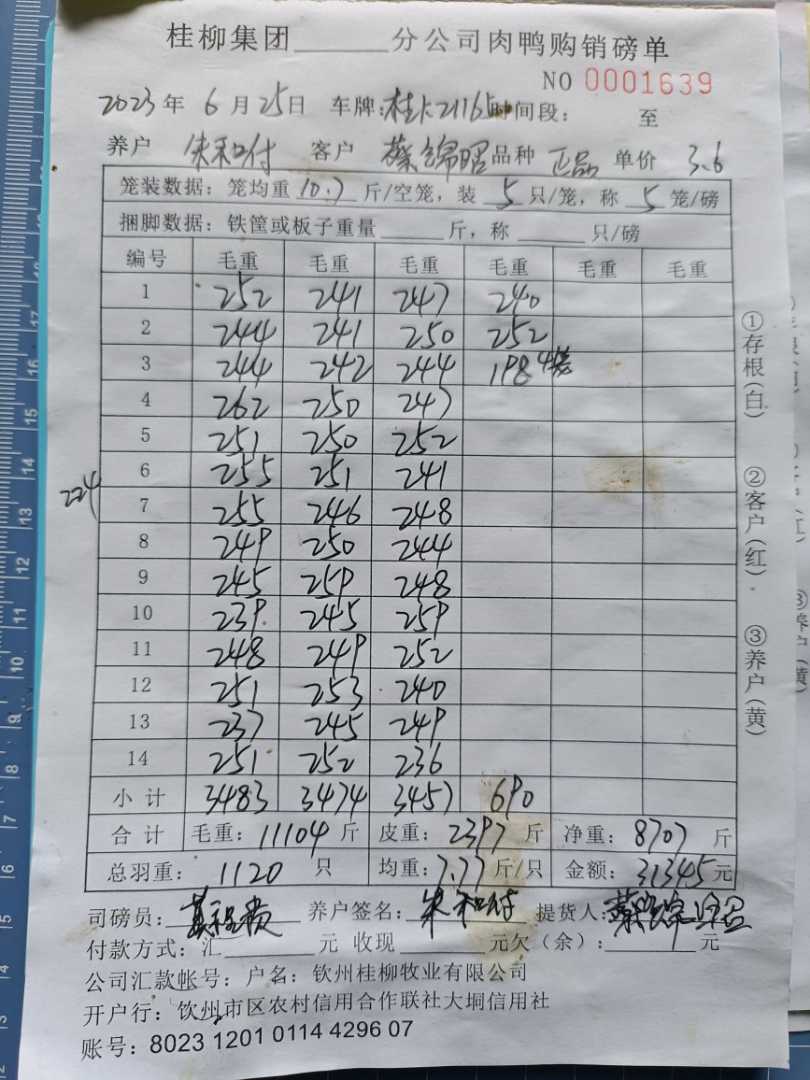 桂柳集团______分公司肉鸭购销磅单
NO 0001639
2023年 6月25日 车牌:桂K21165 时间段: 至
养户 朱和付 客户 蔡锦昭 品种 正品 单价 3.6
笼装数据: 笼均重 10.7 斤/空笼, 装 5 只/笼, 称 5 笼/磅
捆脚数据: 铁筐或板子重量______斤, 称______只/磅
编号 毛重 毛重 毛重 毛重 毛重 毛重
1 252 241 247 240
2 244 241 250 252
3 244 242 244 198 4笼
4 262 250 247
5 251 250 252
6 255 251 241
224
7 255 246 248
8 249 250 244
9 245 259 248
10 239 245 259
11 248 249 252
12 251 253 240
13 237 245 249
14 251 252 236
小计 3483 3474 3457 690
合计 毛重: 11104 斤 皮重: 2397 斤 净重: 8707 斤
总羽重: 1120 只 均重: 7.77 斤/只 金额: 31345 元
司磅员: 养户签名: 朱和付 提货人: 蔡锦昭
付款方式: 汇______元 收现______元欠(余):______元
公司汇款帐号: 户名: 钦州桂柳牧业有限公司
开户行: 钦州市区农村信用合作联社大垌信用社
账号: 8023 1201 0114 4296 07
①存根(白)
②客户(红)
③养户(黄)